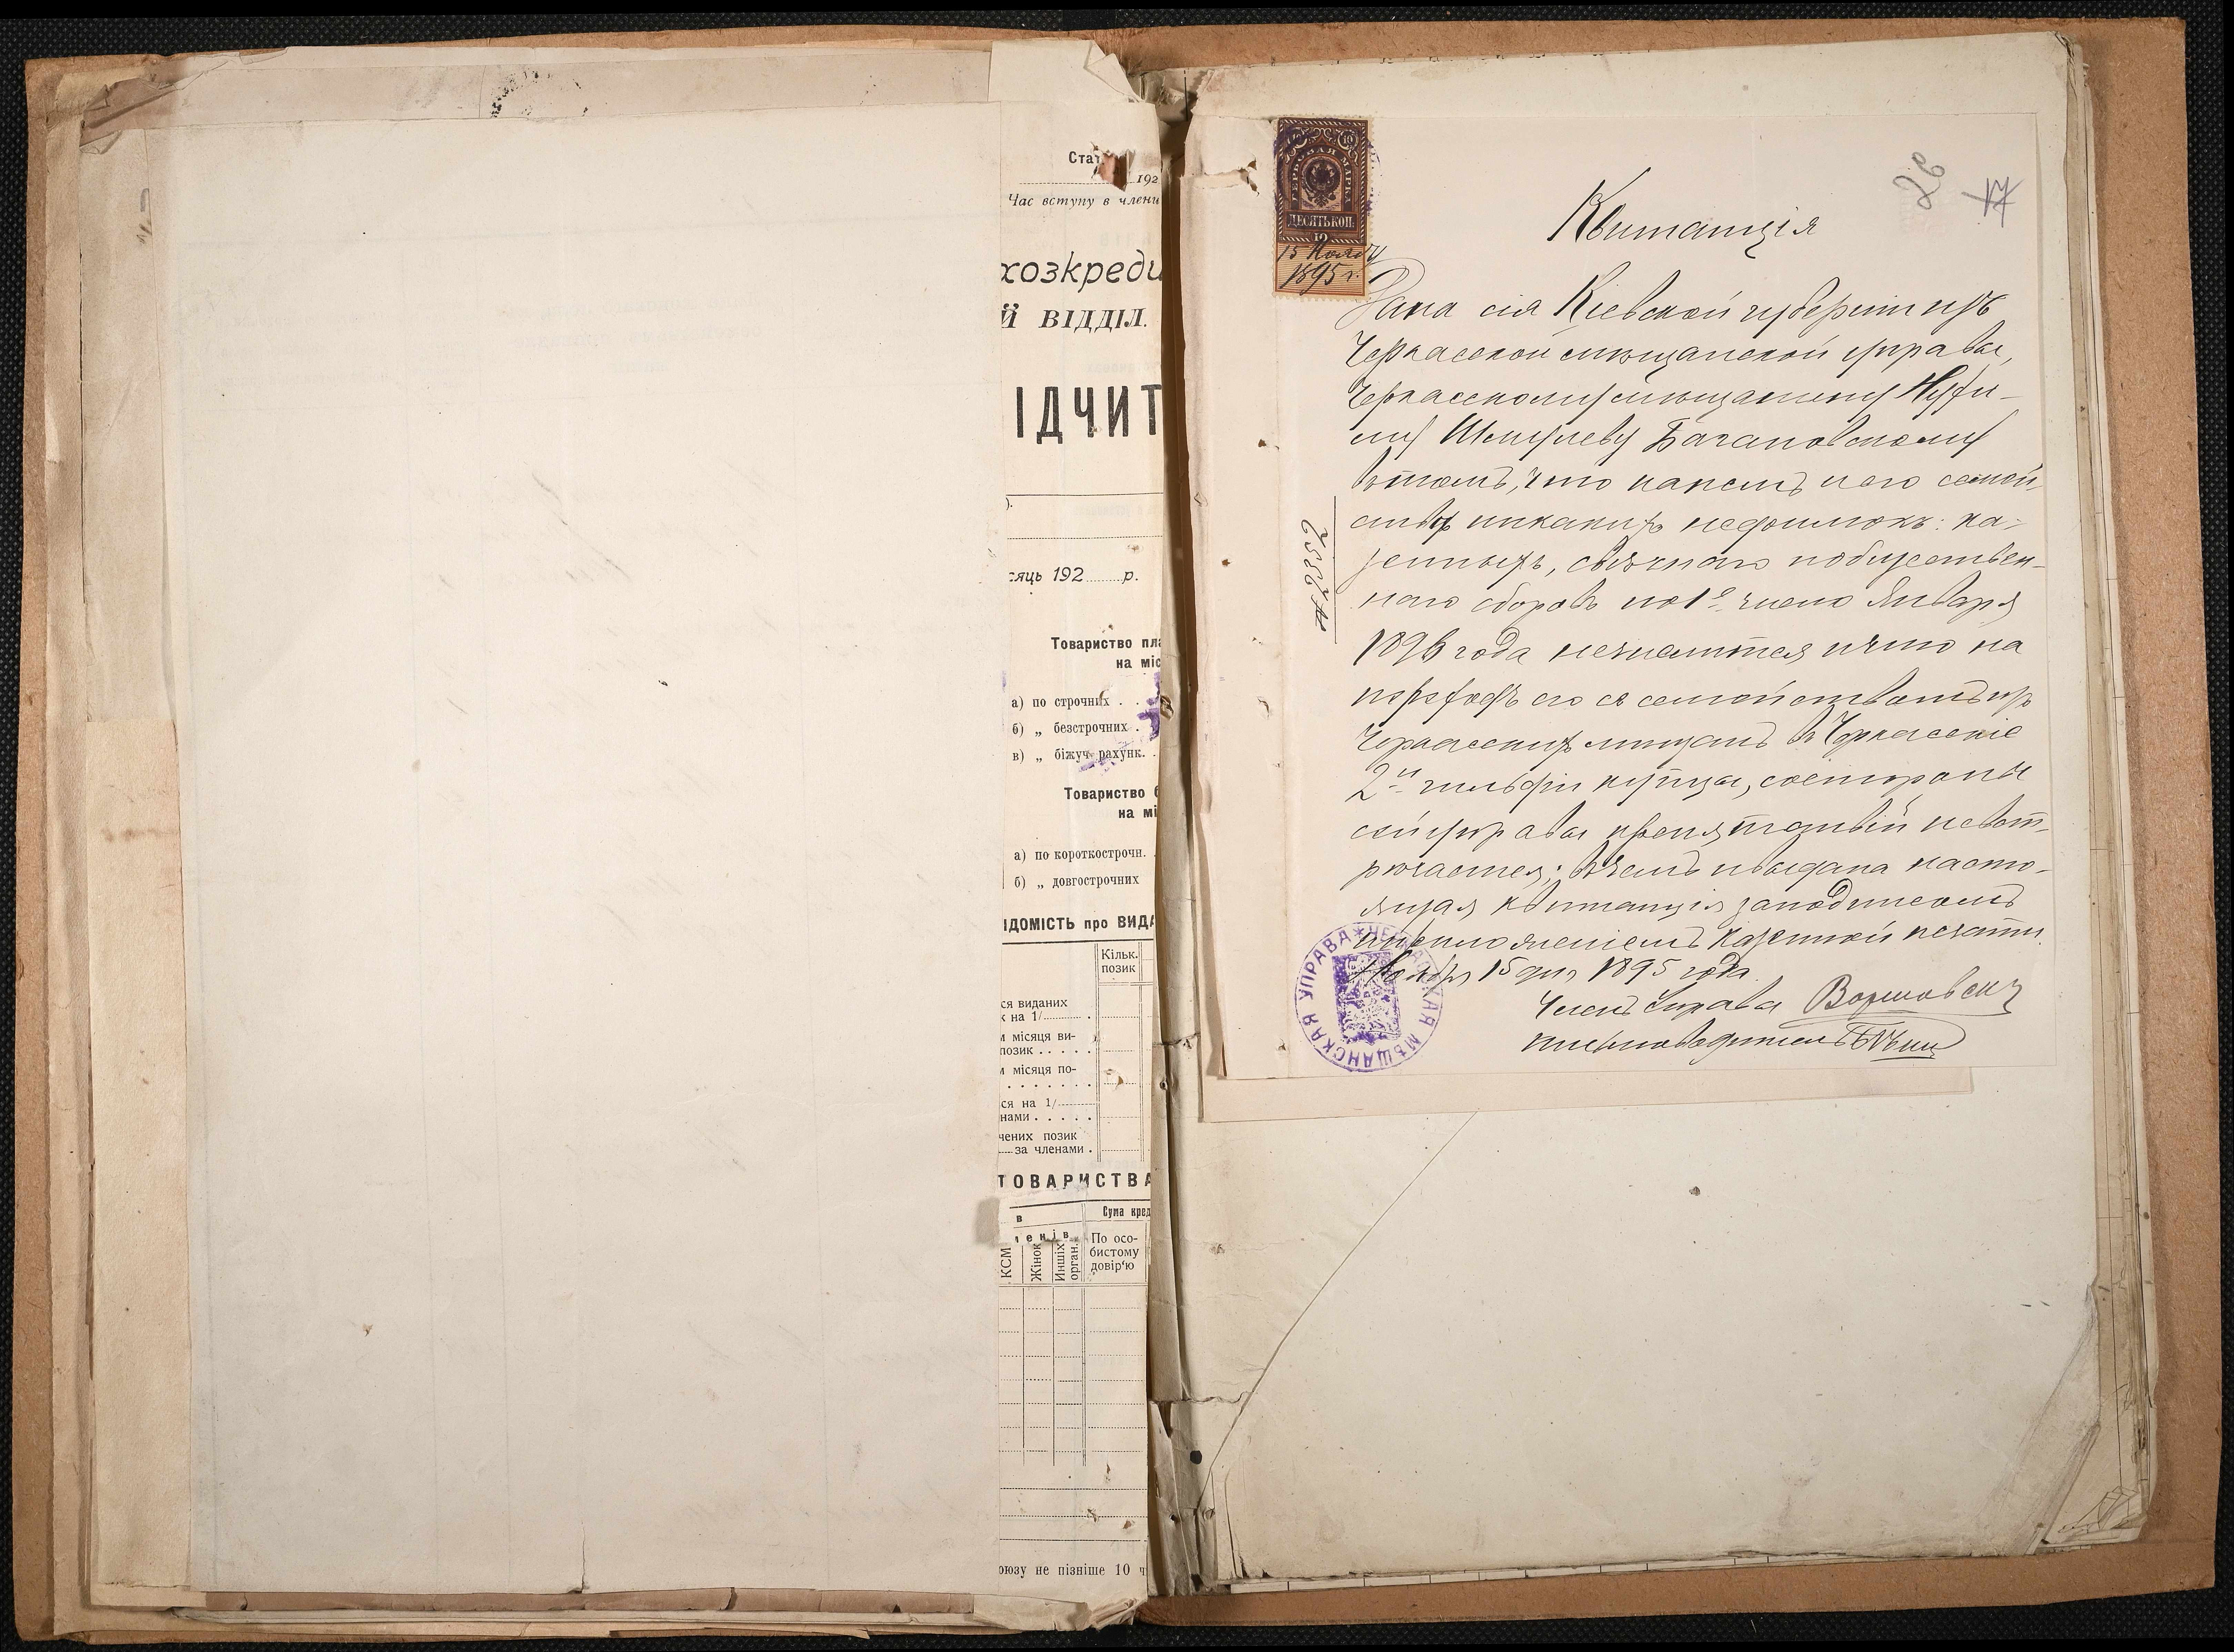 Стат.
192
Час вступу в члени
хозкреди
Й ВІДДІЛ.
ІДЧИТ
).
сяць 192 р.
Товариство пла
на міс
а) по строчних . .
б) „ безстрочних .
в) „ біжуч. рахунк. .
Товариство б
на мі
а) по короткострочн. .
б) „ довгострочних
ІДОМІСТЬ про ВИДА
Кільк.
позик
ся виданих
к на 1/ .
м місяця ви-
позик . . . . .
м місяця по-
. . . . . . .
ся на 1/
нами . . . . .
чених позик
за членами .
ТОВАРИСТВА
в
Сума кред
членів
КСМ
Жінок
Инших орган.
По осо-
бистому
довір'ю
оюзу не пізніше 10 ч
26
17
ГЕРБОВАЯ МАРКА
ДЕСЯТЬ КОП.
10
15 Ноября
1895 г.
№ 2352
Квитанція
Дана сія Кіевской губерніи изъ
Черкасской мѣщанской управы,
Черкасскому мѣщанину Нухи-
му Шмулеву Багановскому
втомъ, что нанемъ иего семей-
ствѣ никакихъ недоимокъ: ка-
зенныхъ, свѣчнаго иобществен-
наго сборовъ по 1е число Января
1896 года нечислится ичто на
переходъ его съ семействомъ изъ
Черкасскихъ мѣщанъ въ Черкасскіе
2й гильдіи купцы, состороны
сей управы препятствій невст-
рѣчается; вчемъ ивыдана насто-
ящая квитанція заподписомъ
иприложеніемъ казенной печати.
Ноября 15 дня 1895 года.
Членъ Управы Варшавскій
письмоводитель
ЧЕРКАССКАЯ МѢЩАНСКАЯ УПРАВА